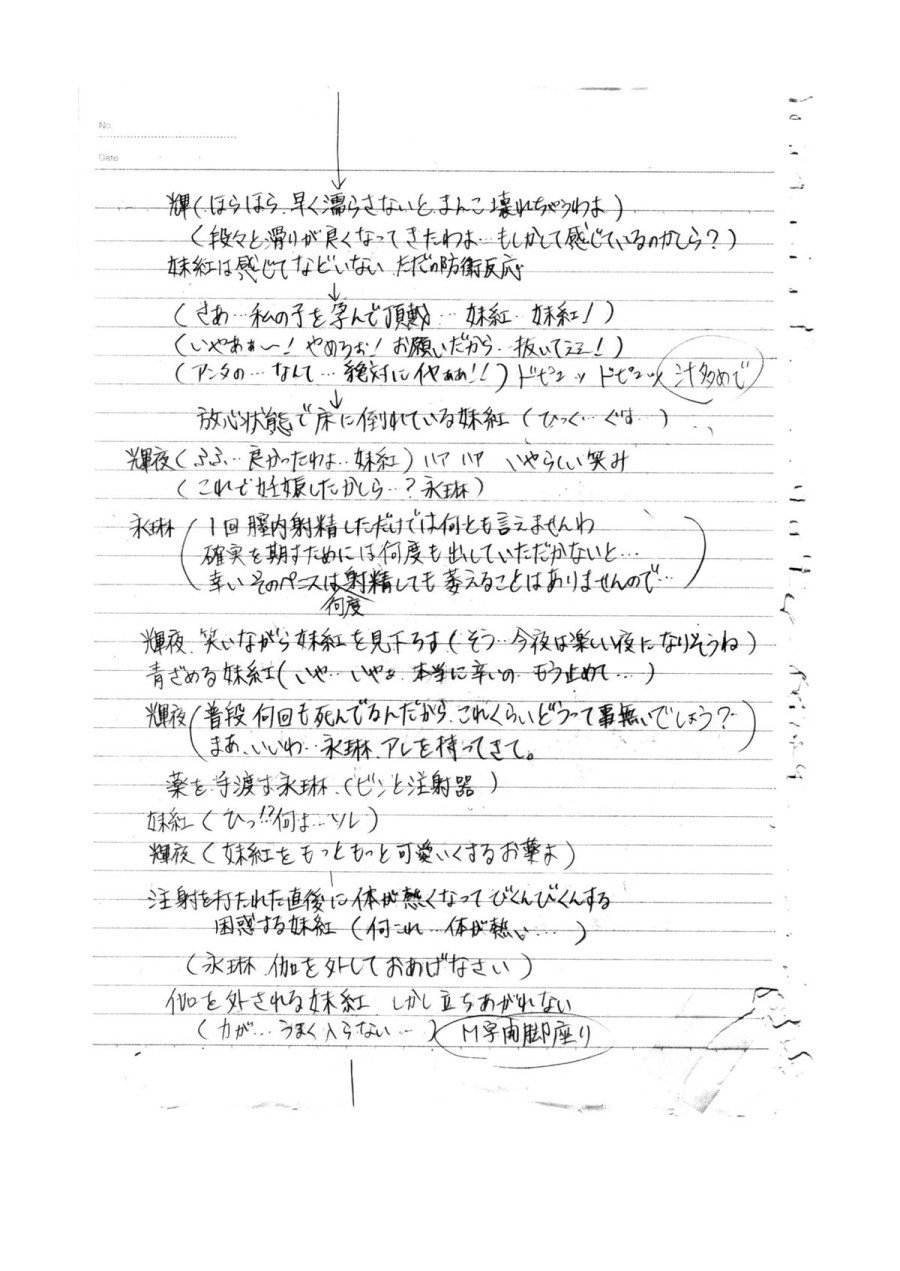 No.
Date
輝(ほらほら、早く濡らさないと、まんこ壊れちゃうわよ)
(段々と滑りが良くなってきたわよ…もしかして感じているのかしら?)
妹紅は感じてなどいない ただの防衛反応
↓
(さあ…私の子を孕んで頂戴… 妹紅… 妹紅!)
(いやあぁ〜! やめろぉ! お願いだから…抜いてェェ!)
(アンタの…なんて… 絶対にイヤぁぁ!!) ドピュッ ドピュッ 汁多めで
↓
放心状態で床に倒れている妹紅 (ひっく…ぐす…)
輝夜(ふふ…良かったわよ…妹紅) ハァ ハァ いやらしい笑み
(これで妊娠したかしら…? 永琳)
永琳(1回膣内射精しただけでは何とも言えませんわ
確実を期すためには何度も出していただかないと…
幸いそのペニスは何度射精しても萎えることはありませんので…)
輝夜、笑いながら妹紅を見下ろす(そう…今夜は楽しい夜になりそうね)
青ざめる妹紅(いや…いやよ 本当に辛いの もう止めて…)
輝夜(普段何回も死んでるんだから、これくらいどうって事無いでしょう?
まあ、いいわ…永琳、アレを持ってきて。)
薬を手渡す永琳、(ビンと注射器)
妹紅(ひっ!?何よ…ソレ)
輝夜(妹紅をもっともっと可愛いくするお薬よ)
注射を打たれた直後に体が熱くなってびくんびくんする
困惑する妹紅(何これ…体が熱い…)
(永琳、伽を外しておあげなさい)
伽を外される妹紅、しかし立ちあがれない
(力が…うまく入らない…) M字開脚座り